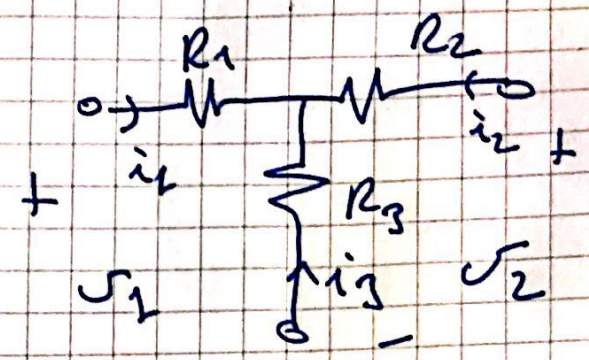 R1 R2
i1 i2
+ +
R3
v1 i3 v2
-